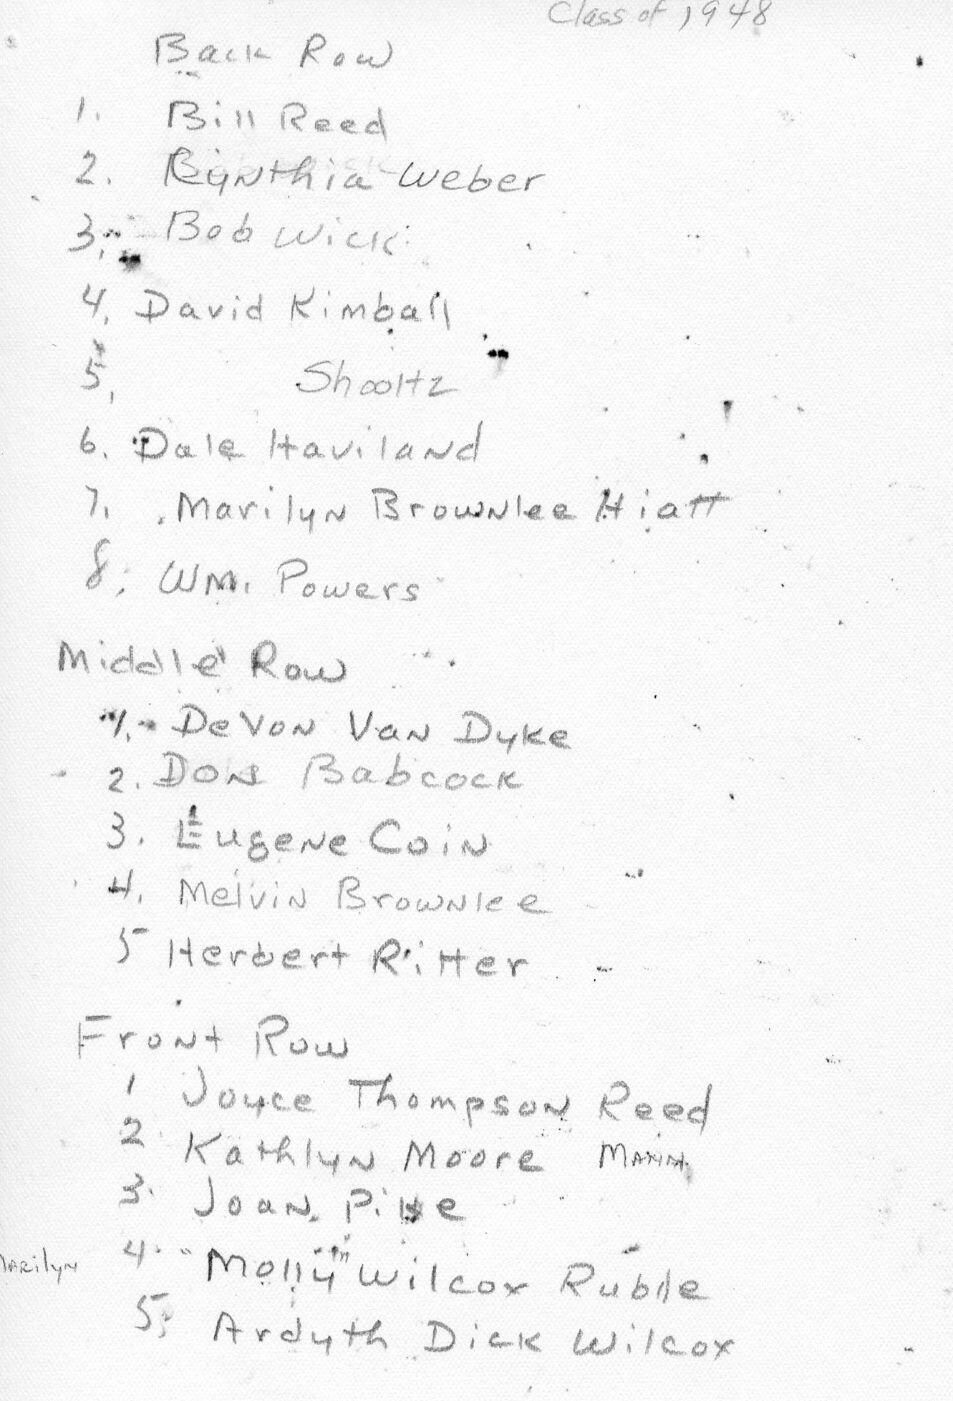 Class of 1948
Back Row
1. Bill Reed
2. Cynthia Weber
3. Bob Wick
4. David Kimball
5. Shooltz
6. Dale Haviland
7. Marilyn Brownlee Hiatt
8. WM. Powers
Middle Row
1. DeVon Van Dyke
2. Don Babcock
3. Eugene Coin
4. Melvin Brownlee
5 Herbert Ritter
Front Row
1 Joyce Thompson Reed
2 Kathlyn Moore
3. Joan Pike
Marilyn 4. "Molly" Wilcox Ruble
5. Ardyth Dick Wilcox